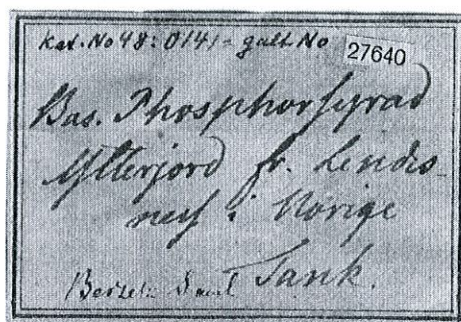 kat. No 48: 0141 - galt No 27640
Bas. Phosphorsyrad
Ytterjord fr. Lindis-
nes i Norige
Tank.